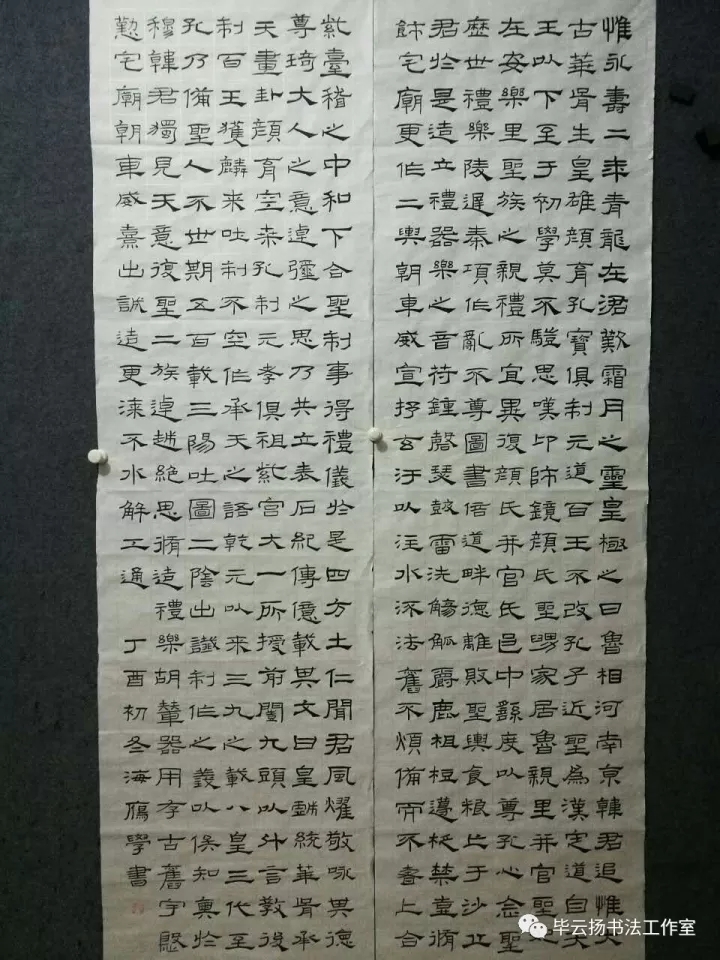 惟永壽二年青龍在涒歎霜月之靈皇極之日魯相河南京韓君追惟大
古華胥生皇雄顏育孔寶俱制元道百王不改孔子近聖為漢定道自天
王以下至于初學莫不驗思嘆卬師鏡顏氏聖舅家居魯親里并官聖妃
在安樂里聖族之親禮所宜異復顏氏并官氏邑中繇度以尊孔心念聖
歷世禮樂陵遲秦項作亂不尊圖書倍道畔德離敗聖輿食糧亡于沙丘
君於是造立禮器樂之音符鍾磬瑟鼓雷洗觴觚爵鹿柤梪籩柉禁壺脩
飾宅廟更作二輿朝車威宣抒玄汙以注水流法舊不煩備而不奢上合
紫臺稽之中和下合聖制事得禮儀於是四方土仁聞君風燿敬咏其德
尊琦大人之意逴彌之思乃共立表石紀傳億載其文曰皇戲統華胥承
天畫卦顏育空桑孔制元孝俱祖紫宮大一所授前闓九頭以斗言教後
制百王獲麟來吐制不空作承天之語乾元以來三九之載八皇三代至
孔乃備聖人不世期五百載三陽吐圖二陰出讖制作之義以俟知奧於
穆韓君獨見天意復聖二族逴越絕思脩造禮樂胡輦器用存古舊宇慇
懃宅廟朝車威熹出誠造更漆不水解工通 丁酉初冬海鴈學書
毕云扬书法工作室